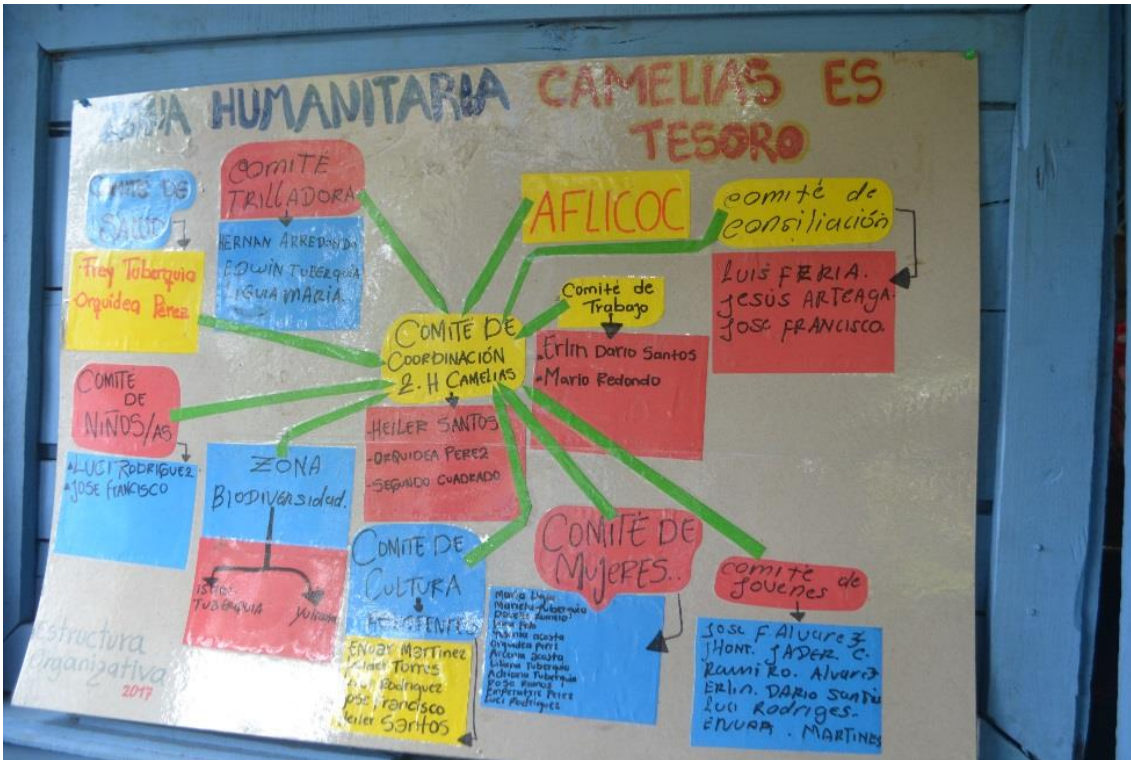 ZONA HUMANITARIA CAMELIAS ES
TESORO
COMITÉ DE
SALUD
-Frey Tuberquia
-Orquidea Pérez
COMITÉ
TRILLADORA
HERNAN ARREDONDO
EDWIN TUBERQUIA
LIGUIA MARIA.
AFLICOC
comité de
consiliación
LUIS FERIA.
JESÚS ARTEAGA.
JOSE FRANCISCO.
Comité de
Trabajo
Erlin Dario Santos
Mario Redondo
COMITÉ DE
COORDINACIÓN
Z.H CAMELIAS
-HEILER SANTOS
-ORQUIDEA PEREZ
-SEGUNDO CUADRADO
COMITÉ
DE
NIÑOS/AS
LUCI RODRIGUEZ.
JOSE FRANCISCO
ZONA
BIODIVERSIDAD.
TUBERQUIA
COMITÉ DE
CULTURA
ENUAR MARTINEZ
Torres
Rodriguez
José Francisco
Heiler Santos
COMITÉ DE
MUJERES..
Maria Ligia
Mariela Tuberquia
acosta
Orquidea Perez
acosta
Liliana Tuberquia
Adriana Tuberquia
Rosa Ramos
Perez
Luci Rodriguez
comité de
Jovenes
Jose F Alvarez
JHONT. JADER. C.
Ramiro. Alvarez
ERLIN. DARIO Santos
Luci Rodriges.
ENUAR. MARTINES
Estructura
Organizativa
2017